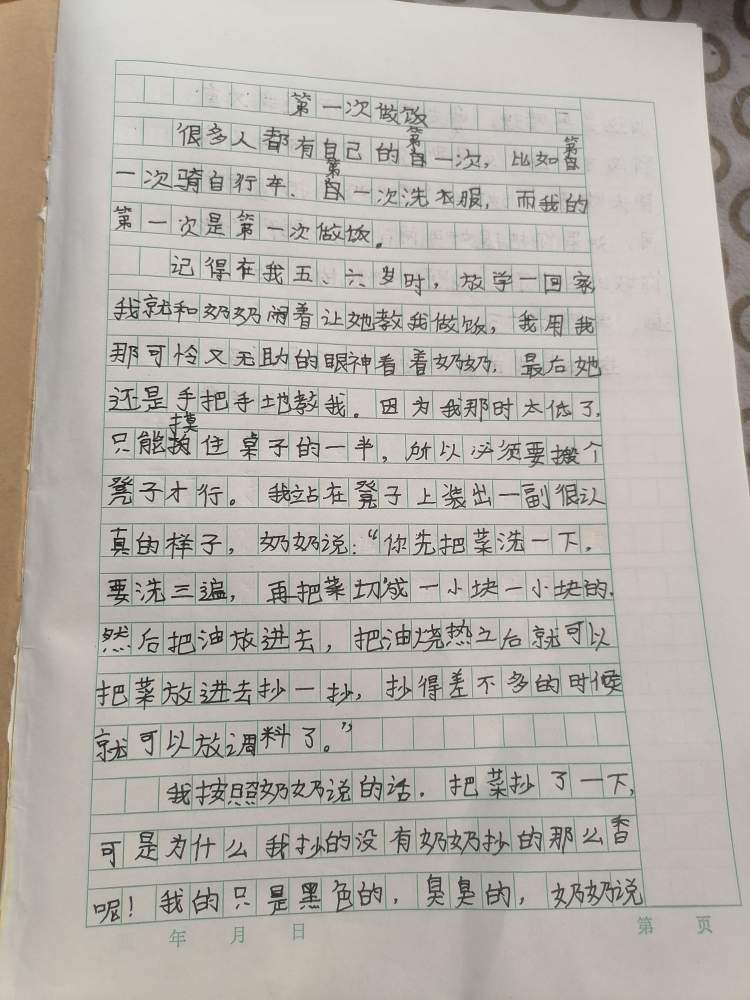 第一次做饭
很多人都有自己的第一次，比如第
一次骑自行车、第一次洗衣服，而我的
第一次是第一次做饭。
记得在我五、六岁时，放学一回家
我就和奶奶闹着让她教我做饭，我用我
那可怜又无助的眼神看着奶奶，最后她
还是手把手地教我。因为我那时太低了，
只能摸住桌子的一半，所以必须要搬个
凳子才行。我站在凳子上装出一副很认
真的样子，奶奶说：“你先把菜洗一下，
要洗三遍，再把菜切成一小块一小块的，
然后把油放进去，把油烧热之后就可以
把菜放进去抄一抄，抄得差不多的时候
就可以放调料了。”
我按照奶奶说的话，把菜抄了一下，
可是为什么我抄的没有奶奶抄的那么香
呢！我的只是黑色的，臭臭的，奶奶说
年 月 日
第 页